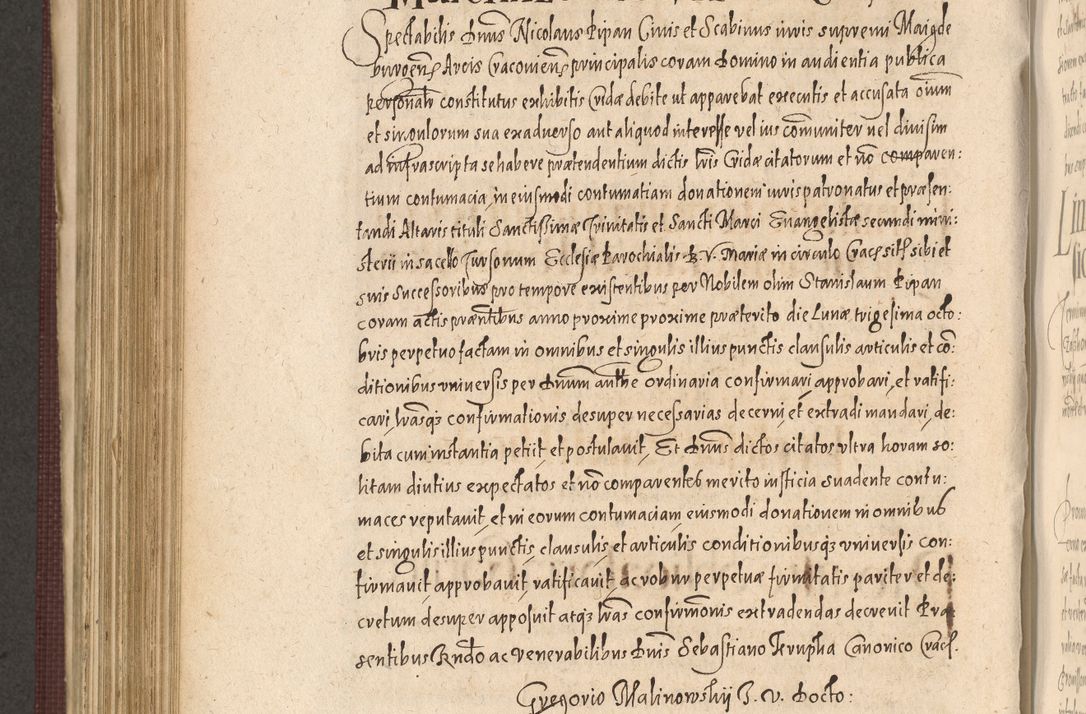 Spectabilis Dnus Nicolaus Pipan Ciuis et Scabinus iuris supremi Maigde
burgen Arcis Cracouien principalis coram Domino in audientia publica
personalr constitutus exhibitis Cridae debite ut apparebat executis et accusata oium
et singulorum sua exaduerso aut aliquod interesse vel ius comuniter uel diuisim
ad infrascripta se habere praetendentium dictis lris Cridae citatorum et no comparen:
tium contumacia, in eiusmodi contumatiam donationem iuris patronatus et praesen:
tandi Altaris tituli Sanctissimae Trinitatis et Sancti Marci Euangelistae secundi mini:
sterii in sacello Tursonum Ecclesiae Parochialis B. V. Mariae in circulo Crac sit sibi et
suis Successoribus pro tempore existentibus per Nobilem olim Stanislaum Pipan
coram actis prantibus anno proxime proxime praeterito die Lunae trigesima octo:
bris perpetuo factam in omnibus et singulis illius punctis clausulis articulis et co
ditionibus vniuersis per Dnum authe ordinaria confirmari approbari, et ratifi:
cari, lrasq3 confirmationis desuper necessarias decerni et extradi mandari, de:
bita cum instantia petiit et postulauit, Et Dnus dictos citatos vltra horam so:
litam diutius expectatos et no comparentes merito iusticia suadente contu:
maces reputauit, et in eorum contumaciam eiusmodi donationem in omnibus
et singulis illius punctis, clausulis, et articulis conditionibusq3 vniuersis con:
firmauit approbauit, ratificauit, ac robur perpetuae firmitatis pariter et de:
cretum desuper apposuit atq3 lras confirmonis extradendas decreuit Prae
sentibus Rndo ac venerabilibus Dnis Sebastiano Krupka Canonico Crac.
Gregorio Malinowskij I. V. Docto: